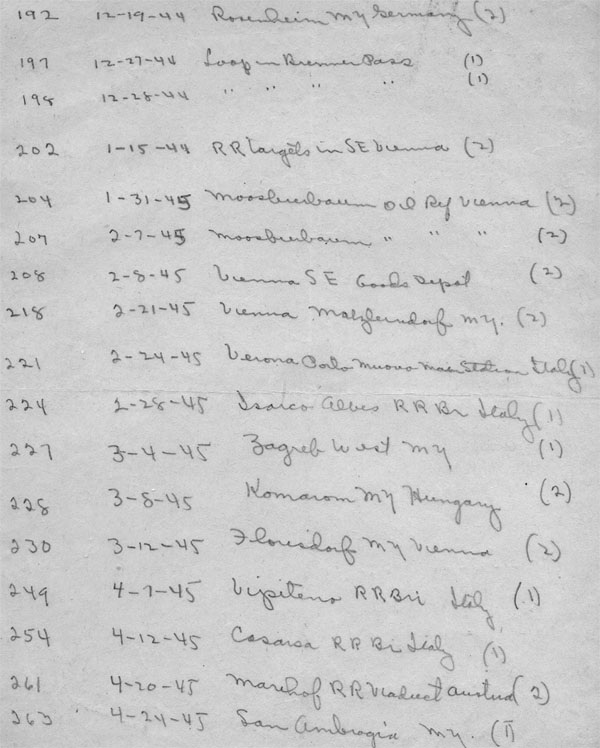 192 12-19-44 Rosenheim My Germany (2)
197 12-27-44 Loop in Brenner Pass (1)
198 12-28-44 " " " " (1)
202 1-15-44 RR Targets in SE Vienna (2)
204 1-31-45 Moosbierbaum Oil Ref Vienna (2)
207 2-7-45 Moosbierbaum " " " (2)
208 2-8-45 Vienna SE Goods Depot (2)
218 2-21-45 Vienna Matzleindorf My. (2)
221 2-24-45 Verona Main Station Italy (1)
224 2-28-45 Isarco Albes RR Br Italy (1)
227 3-4-45 Zagreb West My (1)
228 3-8-45 Komarom My Hungary (2)
230 3-12-45 Florisdorf My Vienna (2)
249 4-7-45 Vipiteno RR Bri Italy (1)
254 4-12-45 Casarsa RR Br Italy (1)
261 4-20-45 RR Viaduct Austria (2)
263 4-24-45 San Ambrogia My. (1)